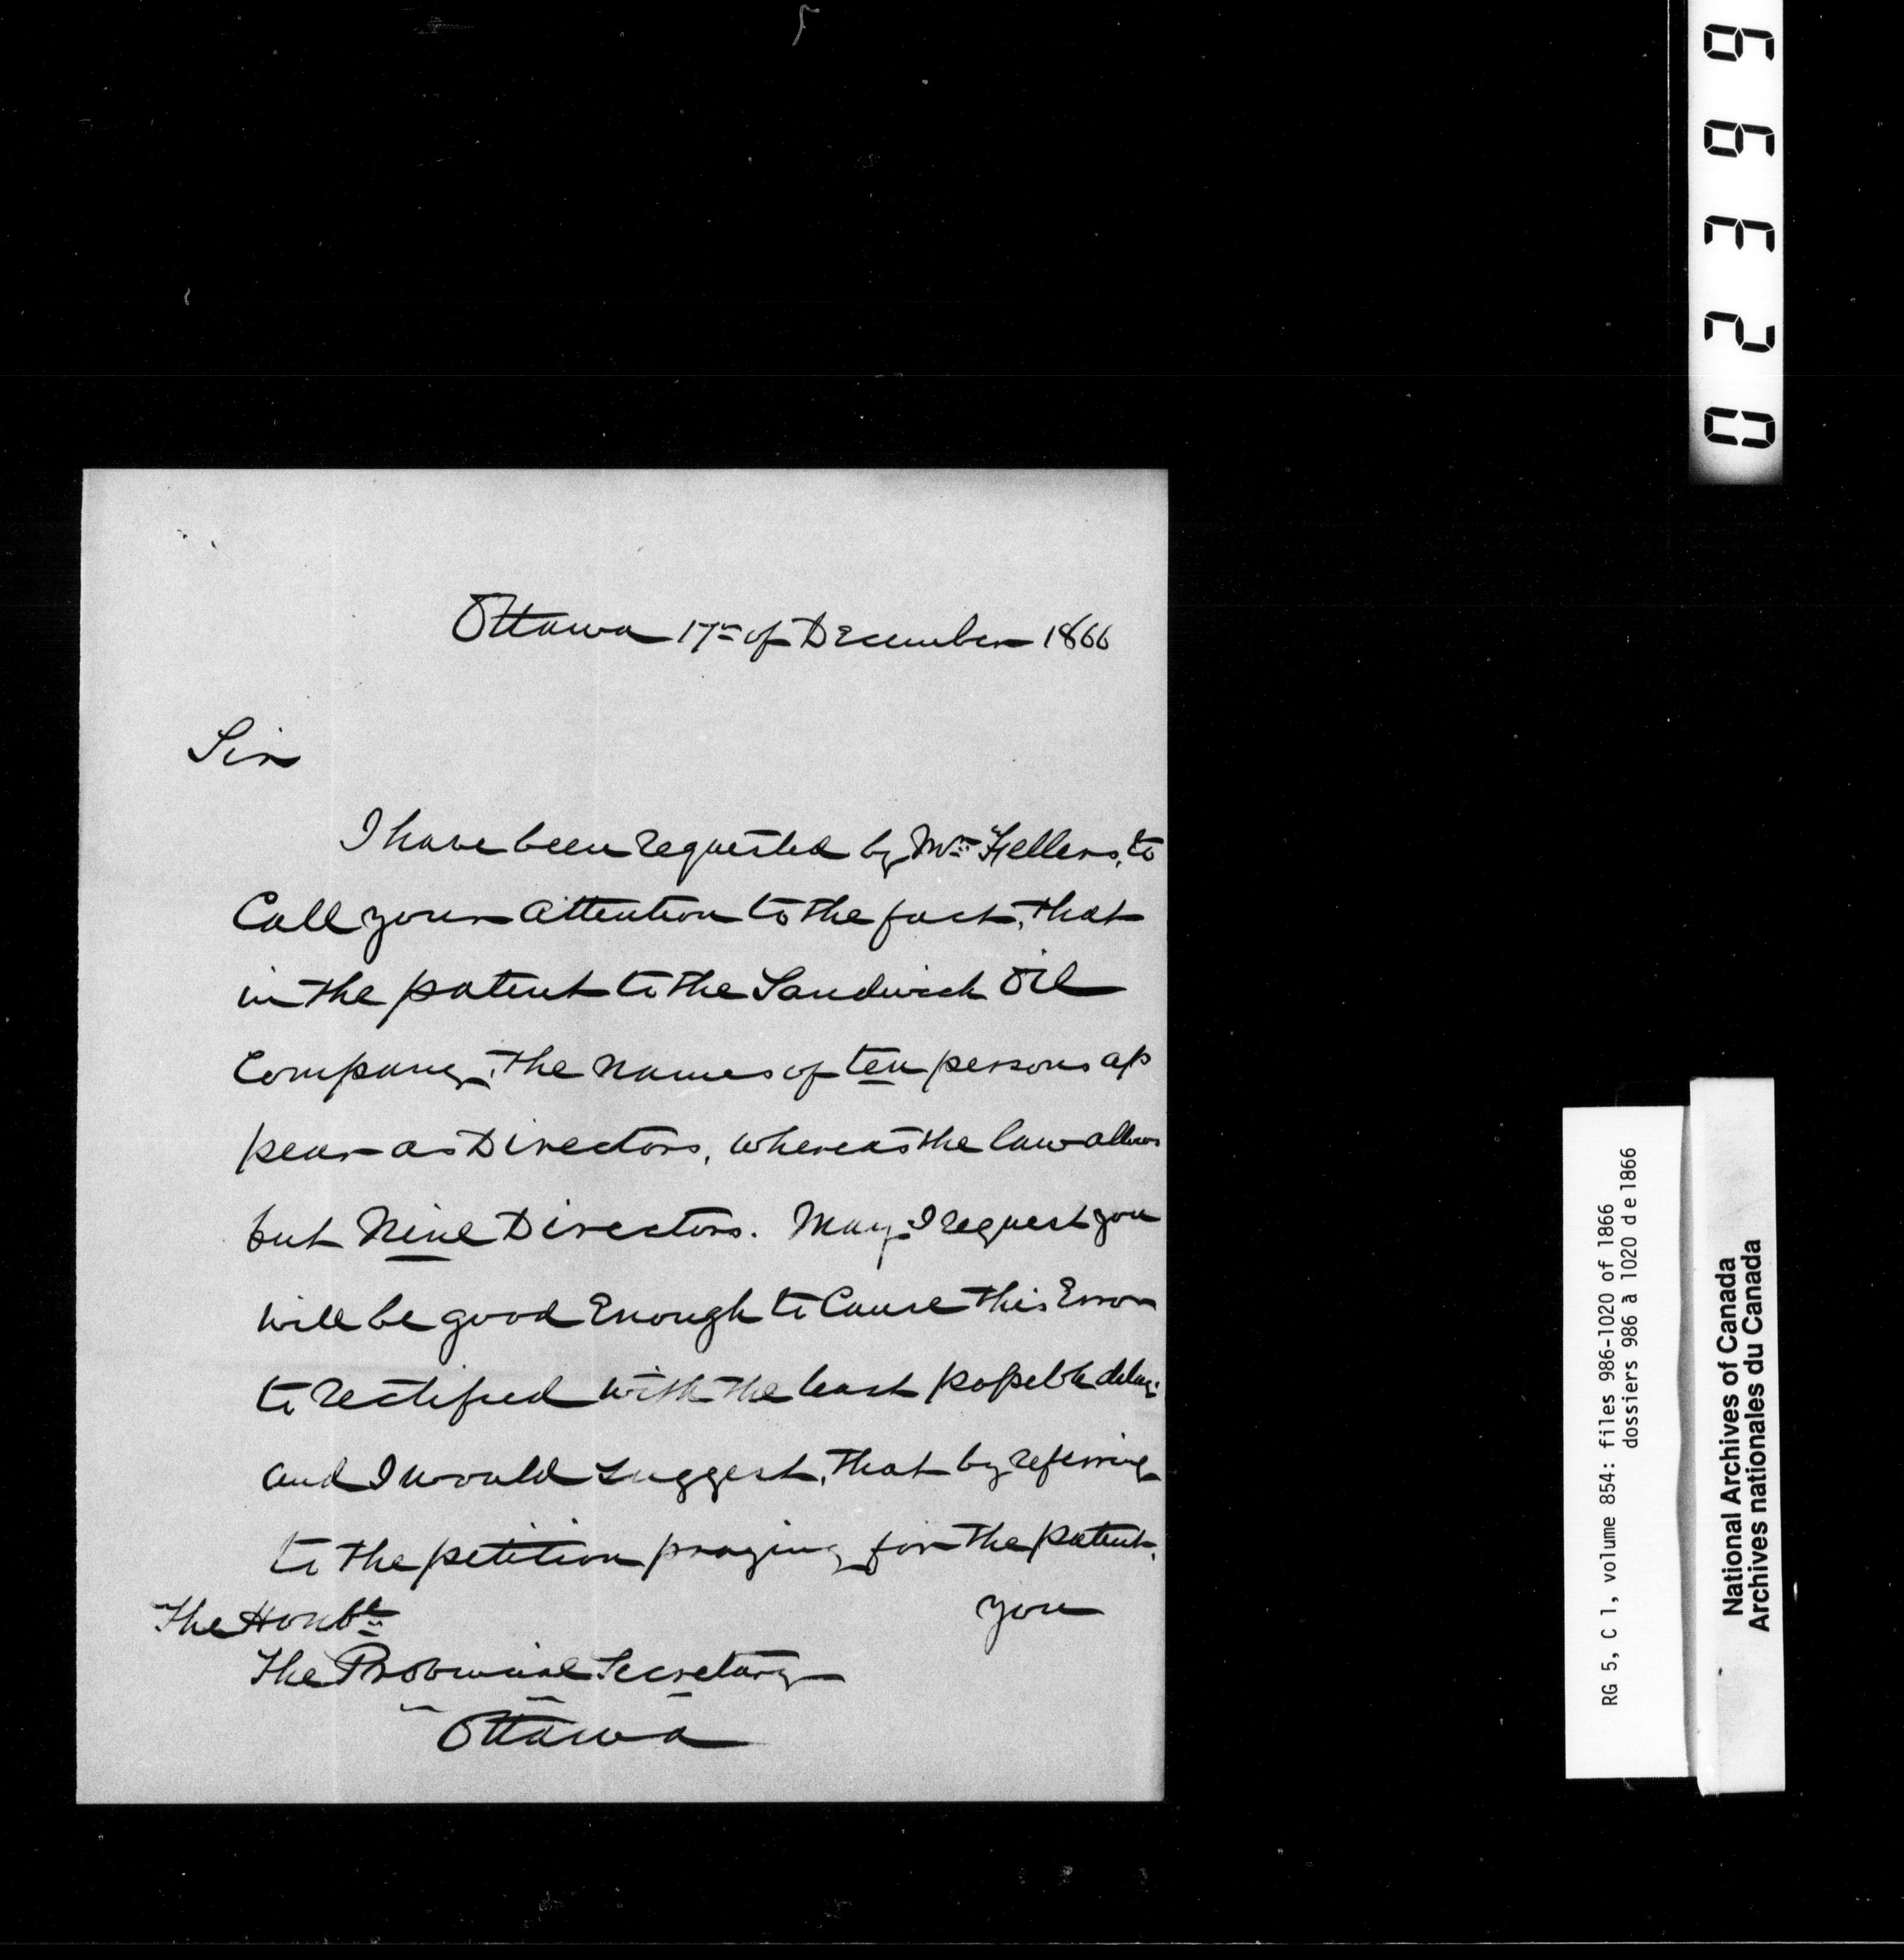 Ottawa 17th of December 1866
Sir
I have been requested by Mr Fellers, to
Call your attention to the fact, that
in the patent to the Sandwich Oil
Company, the names of ten persons ap
pear as Directors, whereas the law allows
but Nine Directors. May I request you
will be good Enough to Cause this Error
to rectified with the least possible delay:
and I would suggest, that by referring
to the petition praying for the patent,
you
The Honble
The Provincial Secretary
Ottawa
02399
RG 5, C 1, volume 854: files 986-1020 of 1866
dossiers 986 à 1020 de 1866
National Archives of Canada
Archives nationales du Canada